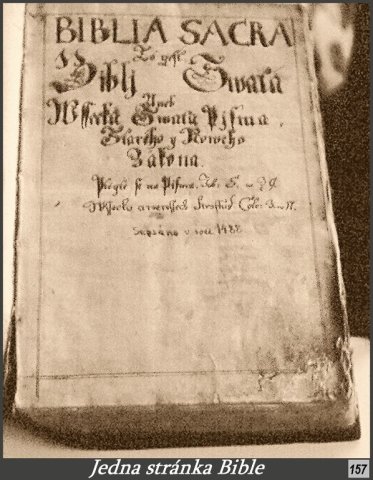 BIBLIA SACRA
To gest
Biblj Swatá
Aneb
Wssecka Swatá Pjsma,
Starého y Nowého
Zákona.
se na Pjsma, 5. w. 39.
3. w. 17.
Sepsáno v roce 1488
Jedna stránka Bible
157